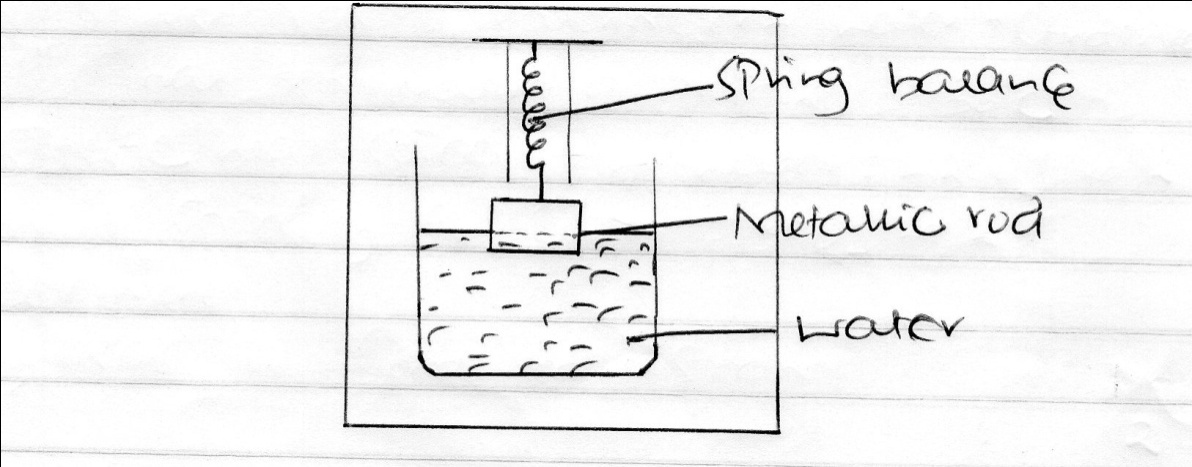 Spring balance
Metallic rod
water